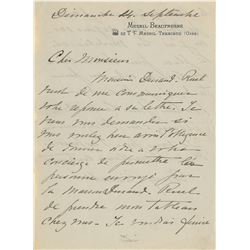 Dimanche 14 Septembre
Mesnil-Beaufresne
Mesnil Theribus (Oise)
Cher Monsieur
Monsieur Durand-Ruel
vient de me communiquer
votre réponse a sa lettre. Je
vous demander si
vous avoir l'obligeance
de a votre
concierge de permettre
personne envoyé par
la Maison Durand-Ruel
de prendre mon tableau
chez vous - Je voudrais